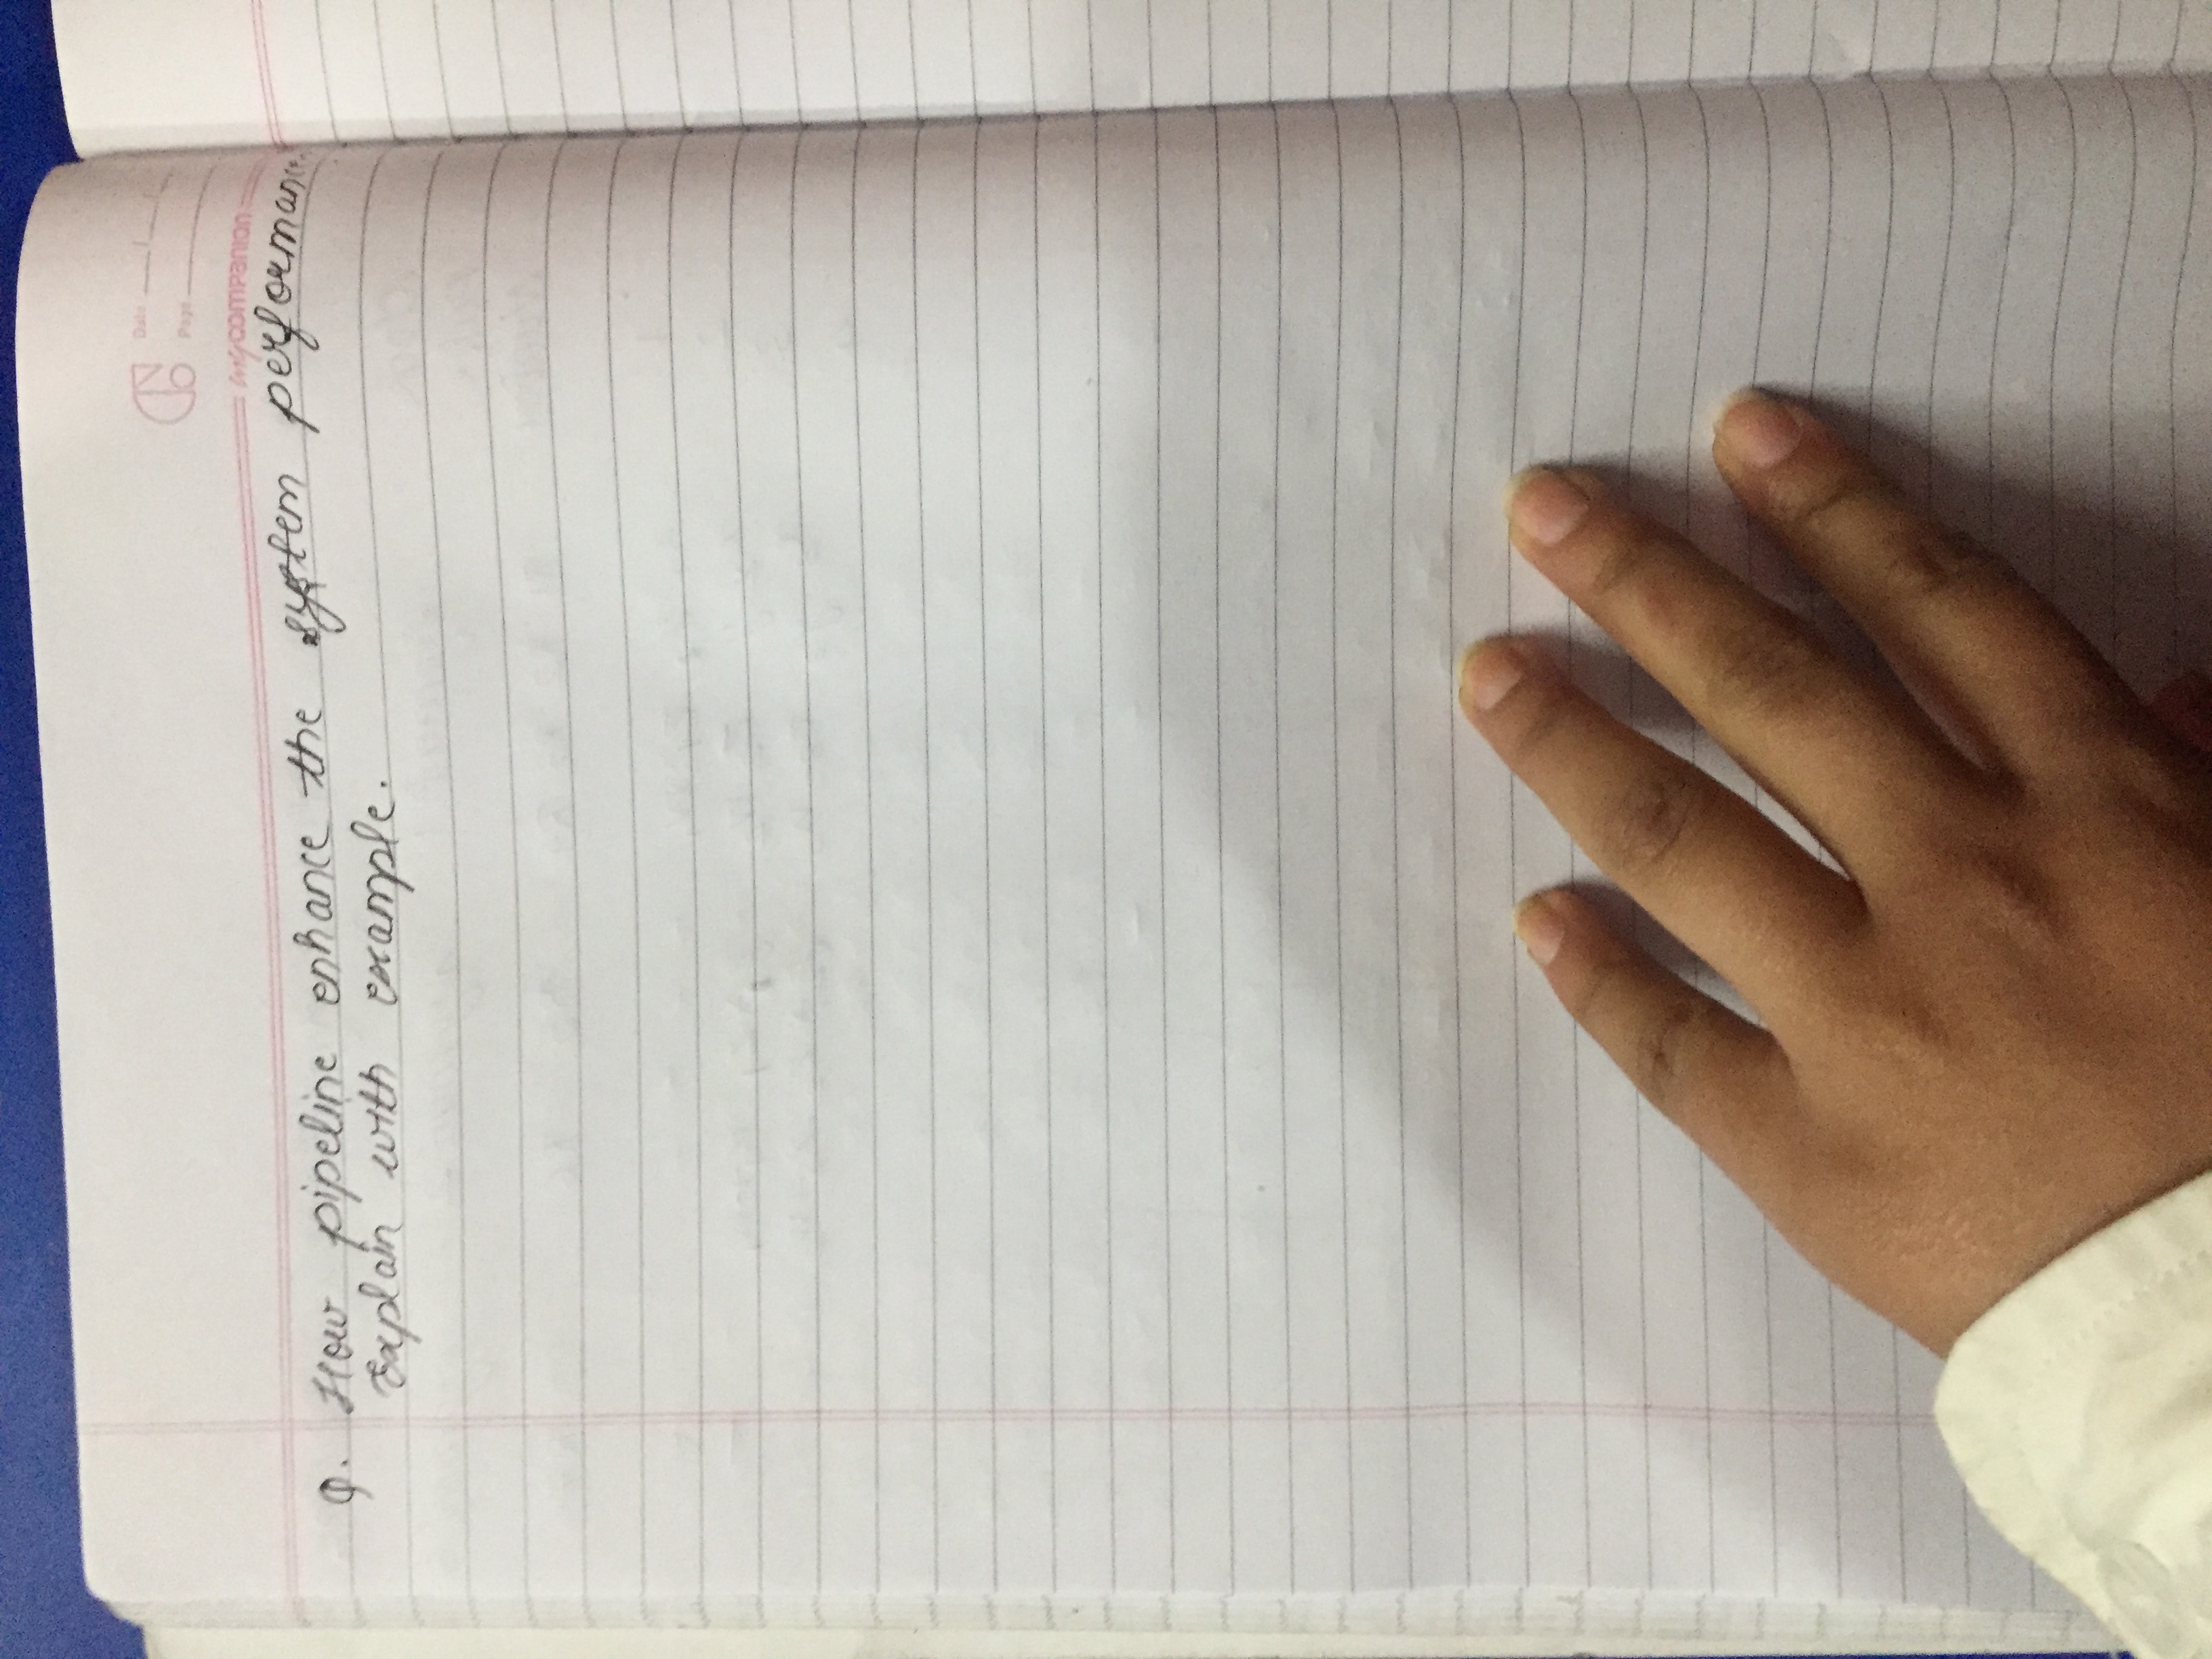 Date
Page
mycompanion
Q. How pipeline enhance the system performance
Explain with example.